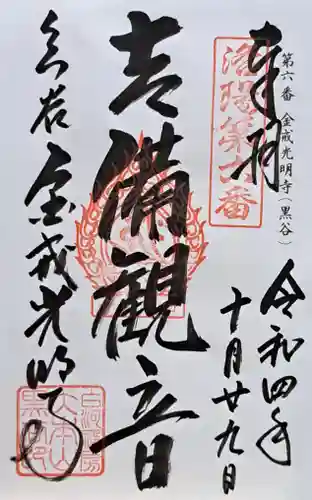 第六番 金戒光明寺（黒谷）
奉拝
洛陽第六番
令和四年
十月廿九日
吉備観音
黒谷 金戒光明寺